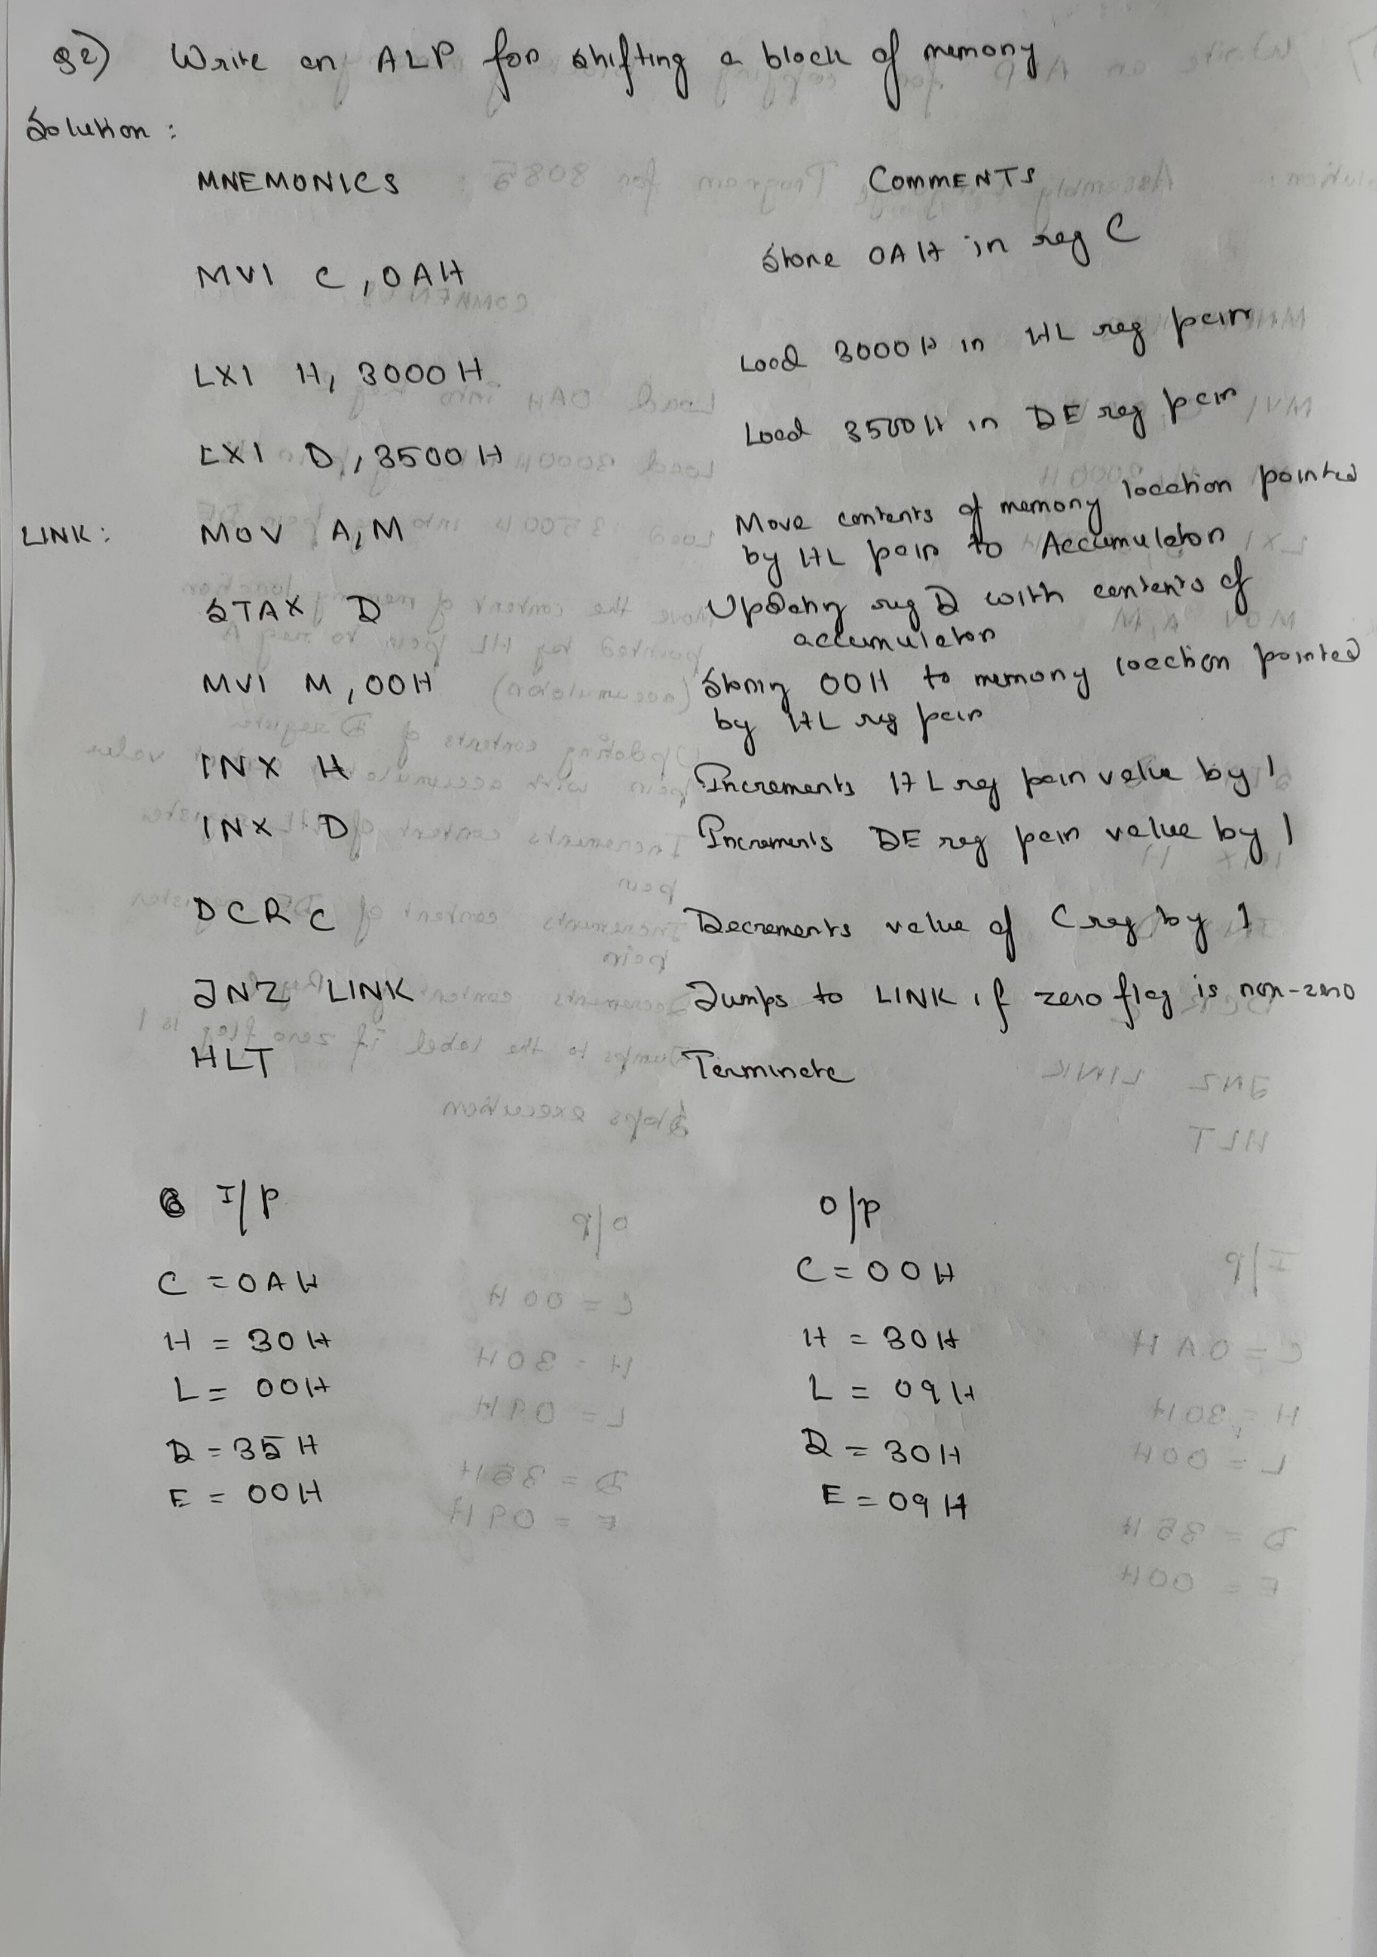 Q2) Write an ALP for shifting a block of memory
Solution :
MNEMONICS COMMENTS
MVI C, 0AH Store 0AH in reg C
LXI H, 3000H Load 3000H in HL reg pair
LXI D, 3500H Load 3500H in DE reg pair
LINK: MOV A, M Move contents of memory location pointed
by HL pair to Accumulator
STAX D Updating reg D with contents of
accumulator
MVI M, 00H Storing 00H to memory location pointed
by HL reg pair
INX H Increments HL reg pair value by 1
INX D Increments DE reg pair value by 1
DCR C Decrements value of C reg by 1
JNZ LINK Jumps to LINK if zero flag is non-zero
HLT Terminate
I/P O/P
C = 0AH C = 00H
H = 30H H = 30H
L = 00H L = 09H
D = 35H D = 30H
E = 00H E = 09H